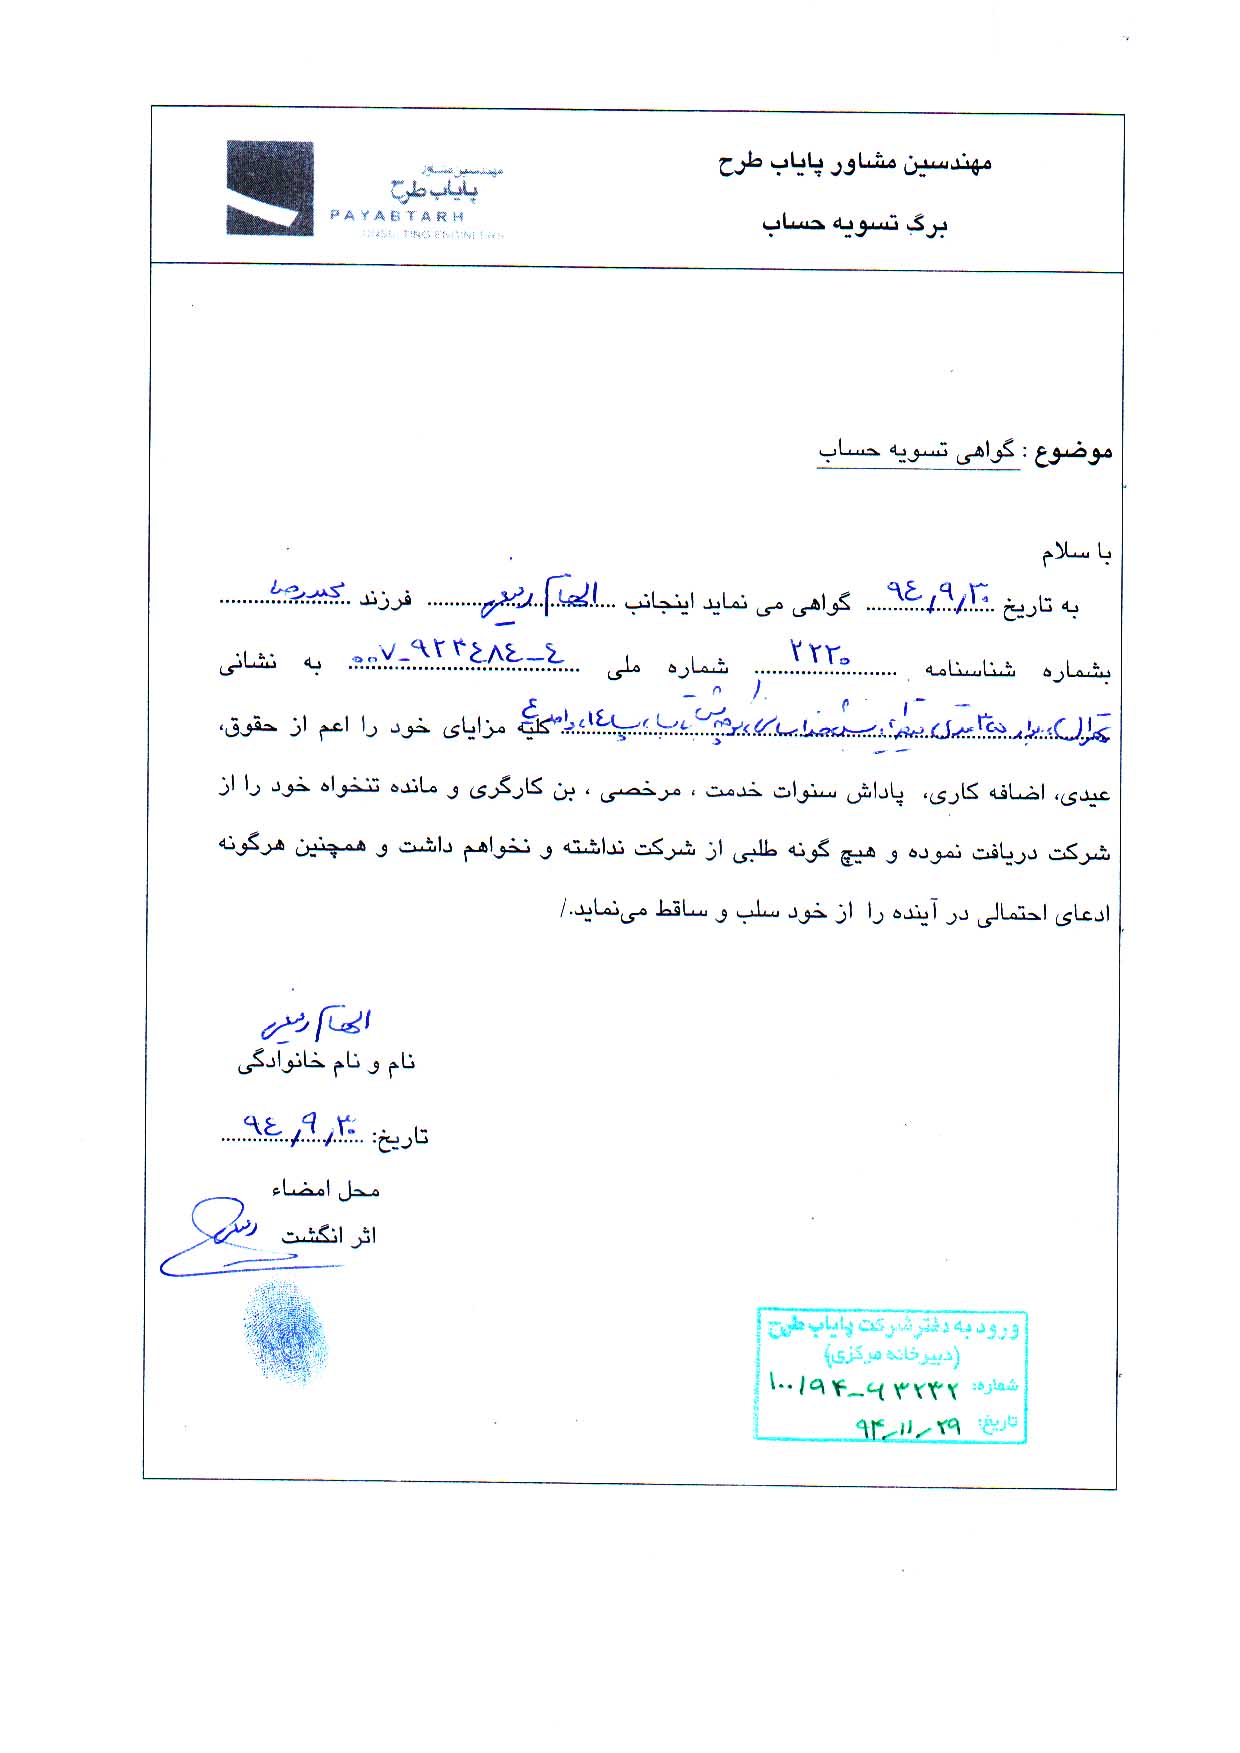 مهندسین مشاور پایاب طرح
برگ تسویه حساب
مهندسین مشاور
پایاب طرح
PAYABTARH
CONSULTING ENGINEERS
موضوع : گواهی تسویه حساب
با سلام
به تاریخ ۹۴/۹/۳۰ گواهی می نماید اینجانب الهام فرزند
بشماره شناسنامه ۲۲۲۰ شماره ملی ۰۰۷-۹۲۳۴۸۴-۴ به نشانی
کلیه مزایای خود را اعم از حقوق،
عیدی، اضافه کاری، پاداش سنوات خدمت ، مرخصی ، بن کارگری و مانده تنخواه خود را از
شرکت دریافت نموده و هیچ گونه طلبی از شرکت نداشته و نخواهم داشت و همچنین هرگونه
ادعای احتمالی در آینده را از خود سلب و ساقط می‌نماید./
الهام
نام و نام خانوادگی
تاریخ: ۹۴/۹/۳۰
محل امضاء
اثر انگشت
ورود به دفتر شرکت پایاب طرح
(دبیرخانه مرکزی)
شماره: ۱۰۰/۹۴-۶۳۲۳۲
تاریخ: ۹۴-۱۱-۲۹